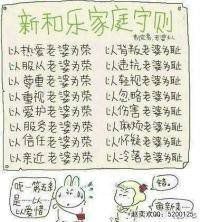 新和乐家庭守则
以热爱老婆为荣 以背叛老婆为耻
以服从老婆为荣 以违抗老婆为耻
以尊重老婆为荣 以轻视老婆为耻
以重视老婆为荣 以忽略老婆为耻
以爱护老婆为荣 以伤害老婆为耻
以服务老婆为荣 以麻烦老婆为耻
以信任老婆为荣 以怀疑老婆为耻
以亲近老婆为荣 以冷落老婆为耻
错。
赵奕欢QQ:5200125